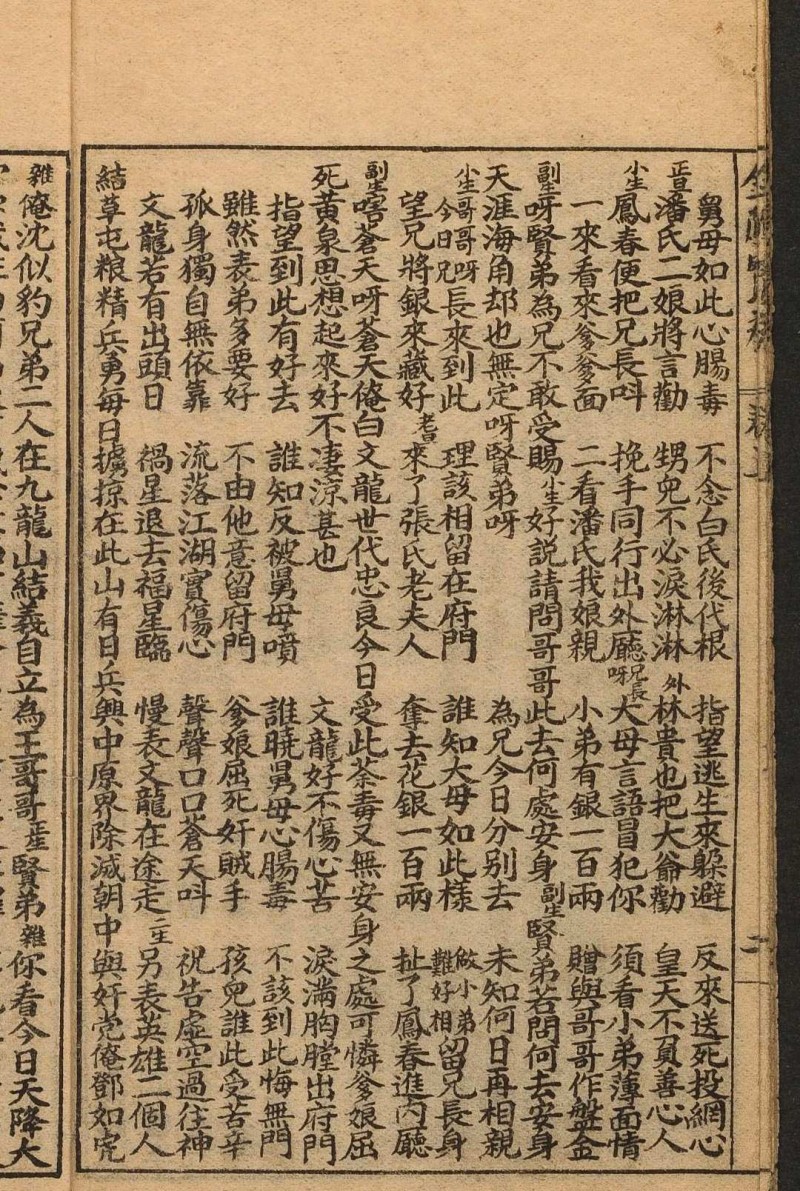 舅母如此心腸毒 不念白氏後代根 指望逃生來躲避 反來送死投網心
正旦潘氏二娘將言勸 甥兒不必淚淋淋 外林貴也把大爺勸 皇天不負善心人
尘生鳳春便把兄長呌 挽手同行出外廳 兄長呀犬母言語冒犯你 須看小弟薄面情
一來看來爹爹面 二看潘氏我娘親 小弟有銀一百兩 贈與哥哥作盤金
副生呀賢弟為兄不敢受賜 尘生好説請問哥哥此去何處安身 副生賢弟若問何去安身
天涯海角却也無定呀賢弟呀 為兄今日分別去 未知何日再相親
尘生哥哥呀今日兄長來到此 理該相留在府門 誰知大母如此樣 做小弟難好相留兄長身
望兄將銀來藏好 老旦來了張氏老夫人 奪去花銀一百兩 扯了鳳春進內廳
副生嗐蒼天呀蒼天俺白文龍世代忠良今日受此荼毒又無安身之處可憐爹娘屈
死黄泉思想起來好不凄涼甚也 文龍好不傷心苦 淚滿胸膛出府門
指望到此有好去 誰知反被舅母噴 誰曉舅母心腸毒 不該到此悔無門
雖然表弟多要好 不由他意留府門 爹娘屈死奸賊手 孩兒誰此受苦辛
孤身獨自無依靠 流落江湖實傷心 聲聲口口蒼天呌 祝告虛空過往神
文龍若有出頭日 禍星退去福星臨 慢表文龍在途走 二生另表英雄二個人
結草屯粮精兵勇每日擄掠在此山有日兵興中原界除滅朝中與奸党俺鄧如虎
雜俺沈似豹兄弟二人在九龍山結義自立為王哥哥正生賢弟雜你看今日天降大